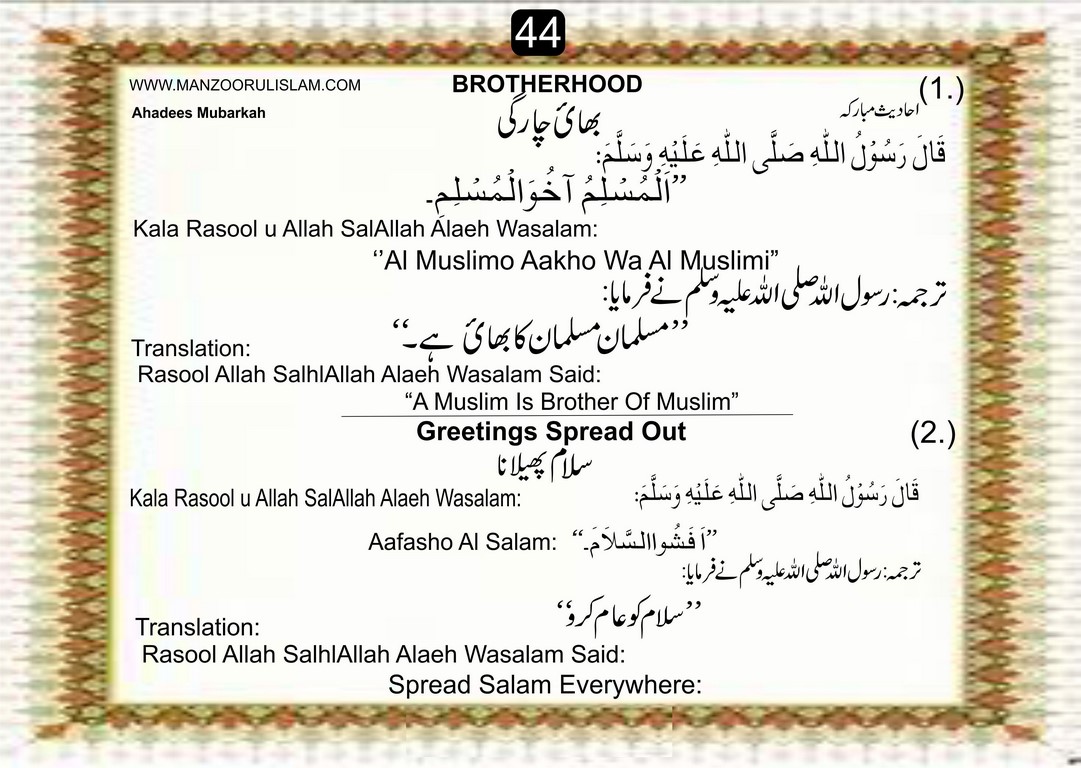 44
WWW.MANZOORULISLAM.COM
BROTHERHOOD
(1.)
Ahadees Mubarkah
احادیث مبارکہ
بھائ چارگی
قَالَ رَسُوْلُ اللّٰهِ صَلَّى اللّٰهِ عَلَيْهِ وَسَلَّمَ:
”اَلْمُسْلِمُ آخُوَالْمُسْلِمِ۔
Kala Rasool u Allah SalAllah Alaeh Wasalam:
‘’Al Muslimo Aakho Wa Al Muslimi”
ترجمہ: رسول اللہ صلی اللہ علیہ وسلم نے فرمایا:
’’مسلمان مسلمان کا بھائ ہے۔‘‘
Translation:
Rasool Allah SalhlAllah Alaeh Wasalam Said:
“A Muslim Is Brother Of Muslim”
Greetings Spread Out
(2.)
سلام پھیلانا
Kala Rasool u Allah SalAllah Alaeh Wasalam:
قَالَ رَسُوْلُ اللّٰهِ صَلَّى اللّٰهِ عَلَيْهِ وَسَلَّمَ:
Aafasho Al Salam: ”اَ فَشُواالسَّلاَمَ۔“
ترجمہ: رسول اللہ صلی اللہ علیہ وسلم نے فرمایا:
’’سلام کو عام کرو‘‘
Translation:
Rasool Allah SalhlAllah Alaeh Wasalam Said:
Spread Salam Everywhere: